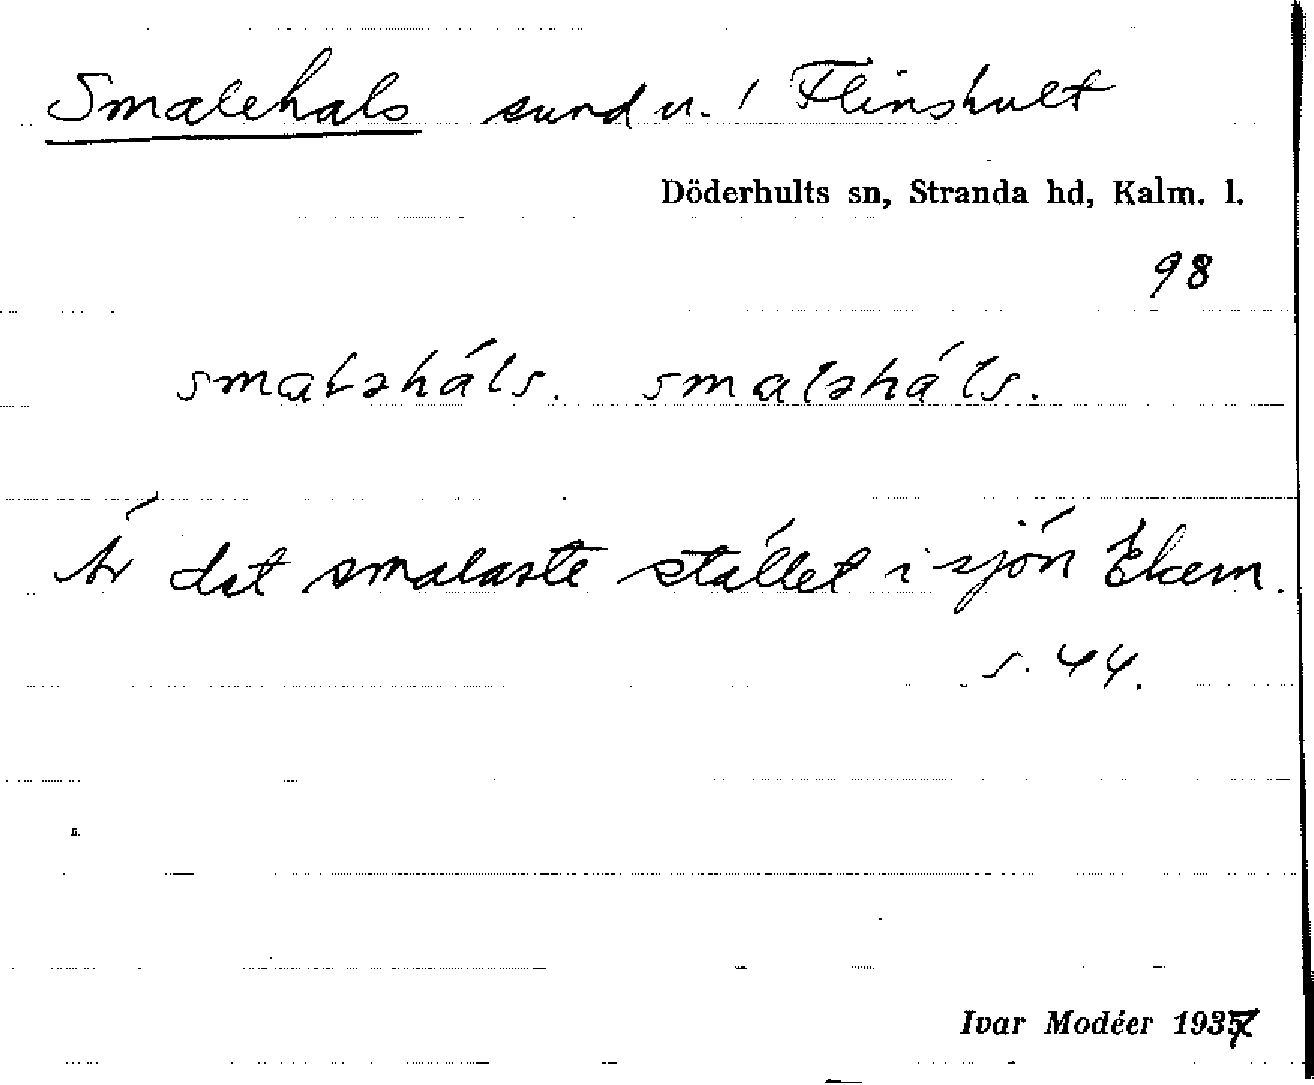 Smalehals sund u. / Flinshult
Döderhults sn, Stranda hd, Kalm. l.
98
smaləháls. smaləháls.
Är det smalaste stället i sjön Ekern.
s. 44.
Ivar Modéer 1937